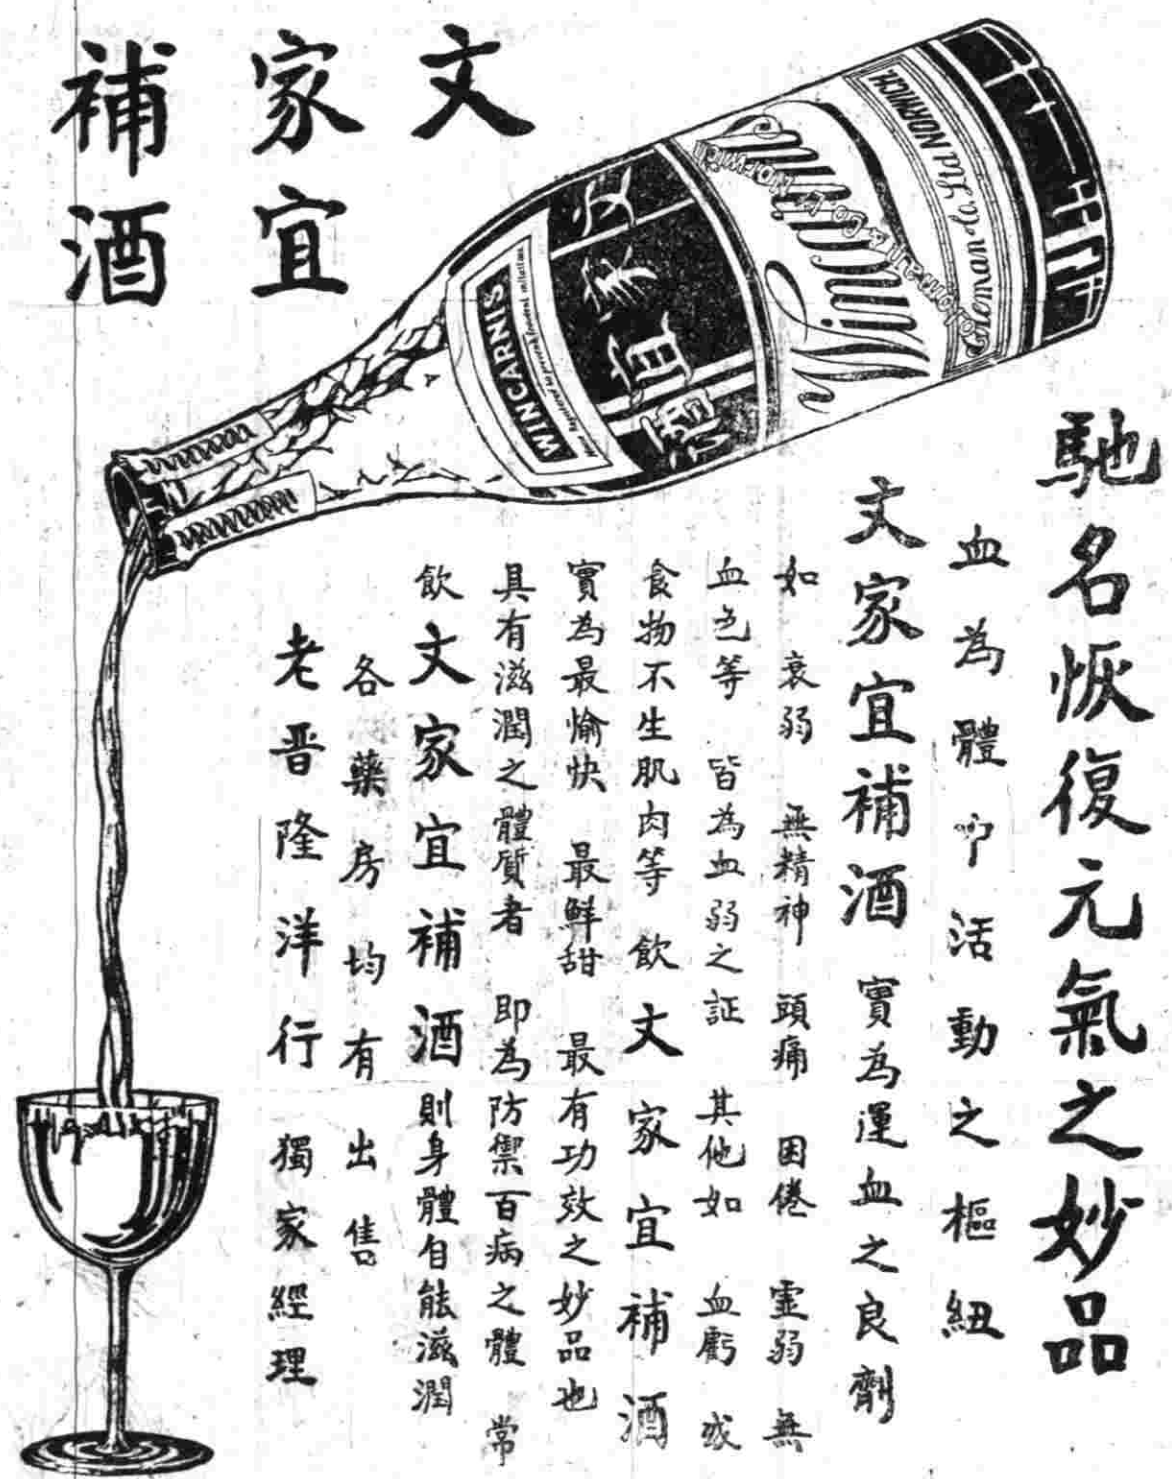 文
家宜
補酒
WINCARNIS
文家宜酒
Wincarnis
Coleman & Co. Ltd. Norwich
Coleman & Co Ltd NORWICH.
馳名恢復元氣之妙品
血為體中活動之樞紐
文家宜補酒 實為運血之良劑
如 衰弱 無精神 頭痛 困倦 虛弱 無
血色等 皆為血弱之証 其他如 血虧 或
食物不生肌肉等 飲文家宜補酒
實為最愉快 最鮮甜 最有功效之妙品也
具有滋潤之體質者 即為防禦百病之體 常
飲文家宜補酒則身體自能滋潤
各藥房均有出售
老晋隆洋行 獨家經理